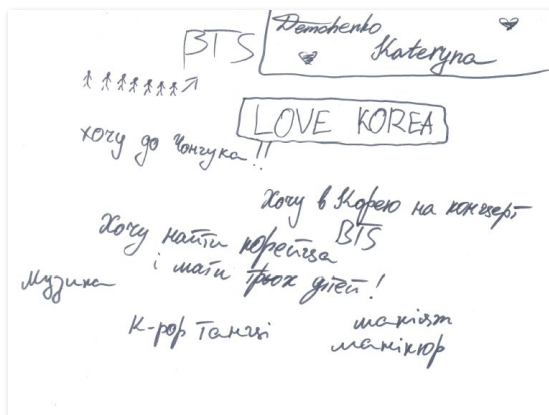 Demchenko
Kateryna
BTS
LOVE KOREA
хочу до Чонгука!!
Хочу в Корею на концерт
BTS
Хочу найти корейца
і мати трьох дітей!
Музика
K-pop танці
макіяж
манікюр